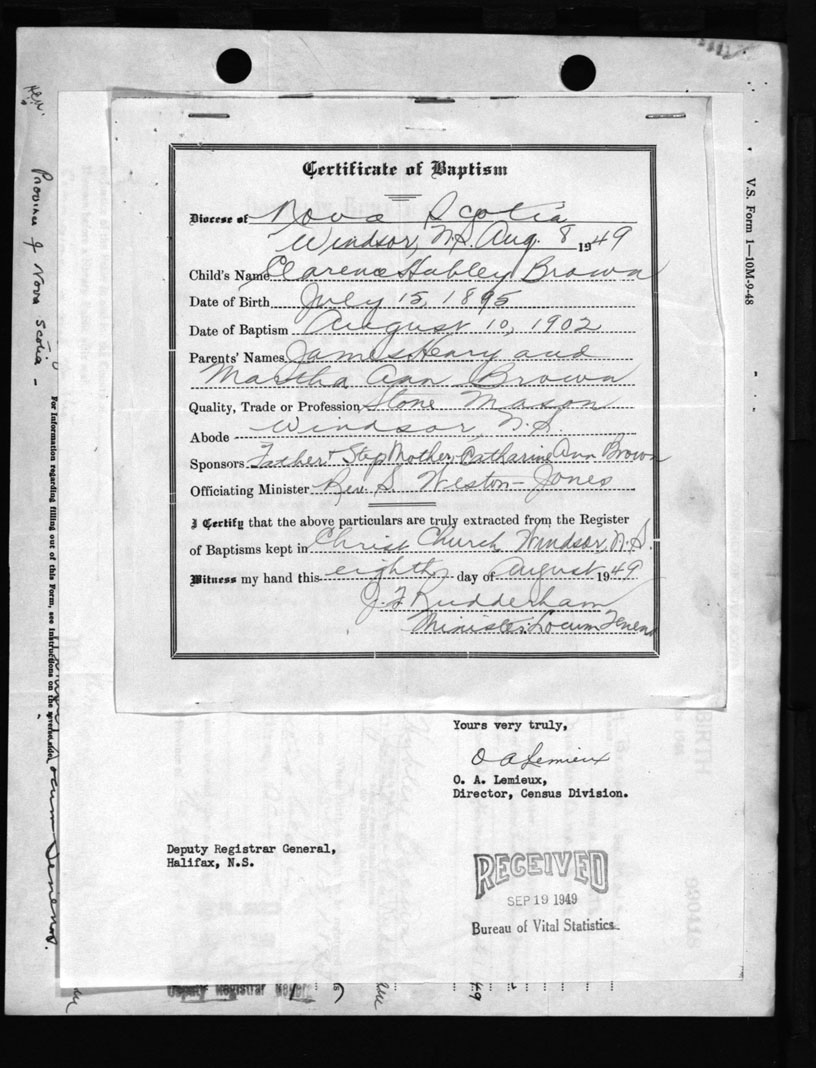 Certificate of Baptism
Diocese of Nova Scotia
Windsor, N.S. Aug. 8 1949
Child's Name Clarence Hubley Brown
Date of Birth July 15, 1895
Date of Baptism August 10, 1902
Parents' Names James Henry and
Martha Ann Brown
Quality, Trade or Profession Stone Mason
Abode Windsor, N.S.
Sponsors Father & Step Mother, Catharine Ann Brown
Officiating Minister Rev. S. Weston-Jones
I Certify that the above particulars are truly extracted from the Register
of Baptisms kept in Christ Church, Windsor, N.S.
Witness my hand this eighth day of August 1949
J. F. Rudderham
Minister Locum Tenens
Yours very truly,
O A Lemieux
O. A. Lemieux,
Director, Census Division.
Deputy Registrar General,
Halifax, N.S.
RECEIVED
SEP 19 1949
Bureau of Vital Statistics
Province of Nova Scotia -
For Information regarding filling out of this Form, see instructions on the reverse side.
Locum Tenens.
V.S. Form 1—10M-9-48
Deputy Registrar
49